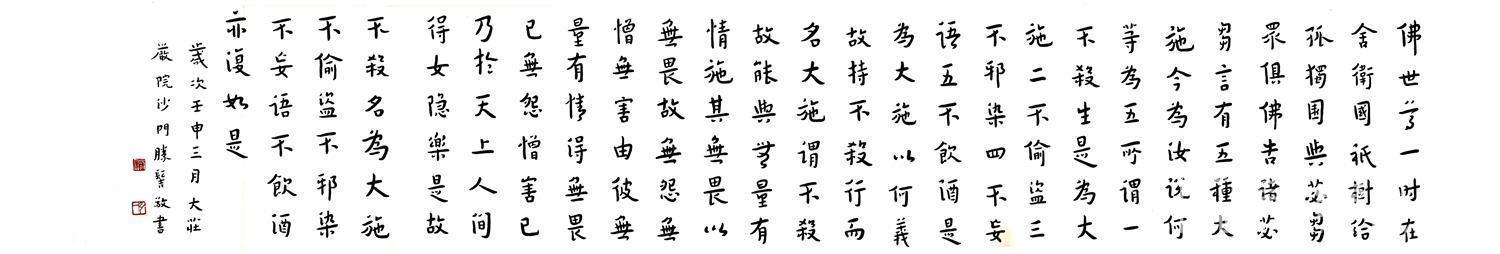 佛世尊一时在
舍衛國祇樹给
孤獨園與苾芻
眾俱佛告諸苾
芻言有五種大
施今為汝说何
等為五所謂一
不殺生是為大
施二不偷盜三
不邪染四不妄
语五不飲酒是
為大施以何義
故持不殺行而
名大施谓不殺
故能與無量有
情施其無畏以
無畏故無怨無
憎無害由彼無
量有情得無畏
已無怨憎害已
乃於天上人间
得安隐樂是故
不殺名為大施
不偷盜不邪染
不妄语不飲酒
亦復如是
歲次壬申三月大莊
嚴院沙門勝髻敬書